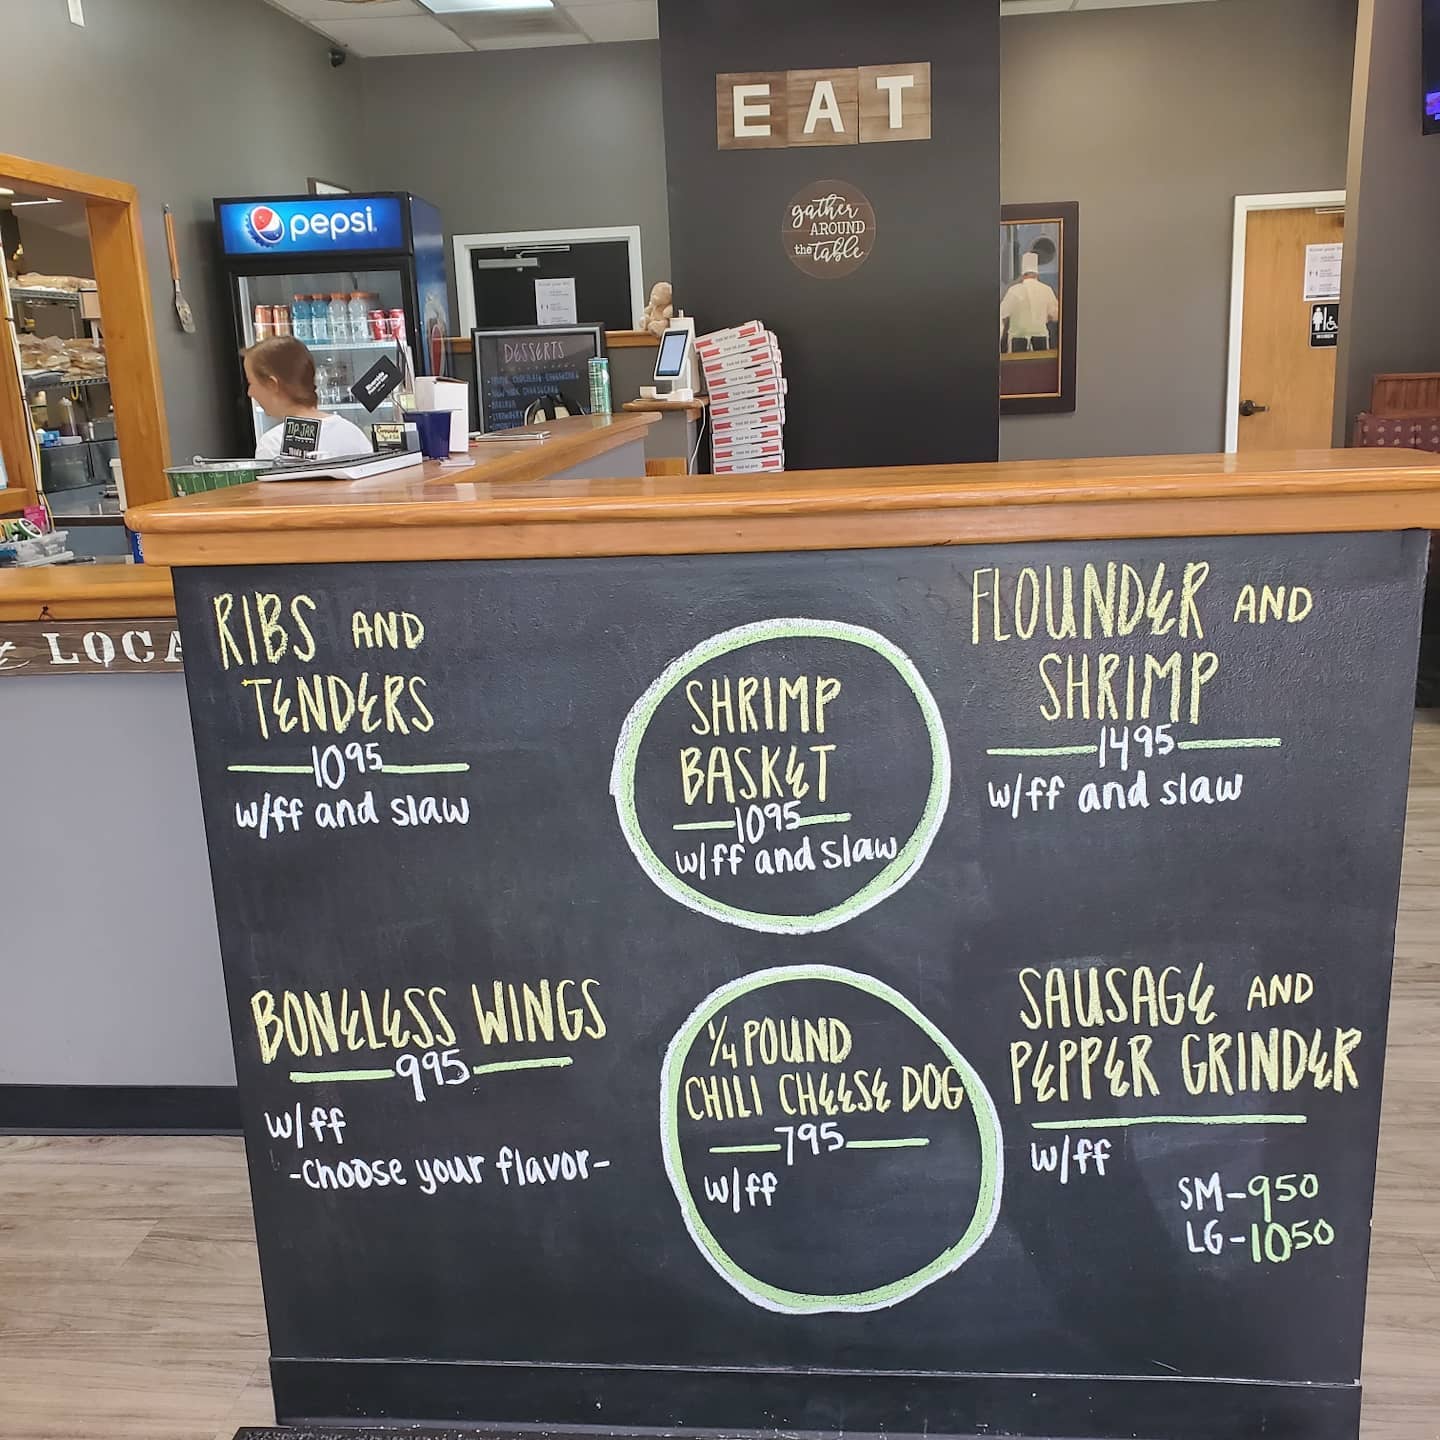 EAT
gather
AROUND
the table
pepsi
DESSERTS
TIP JAR
LOCA
WOMEN
RIBS AND
TENDERS
1095
w/ff and slaw
SHRIMP
BASKET
1095
w/ff and slaw
FLOUNDER AND
SHRIMP
1495
w/ff and slaw
BONELESS WINGS
995
w/ff
-choose your flavor-
1/4 POUND
CHILI CHEESE DOG
795
w/ff
SAUSAGE AND
PEPPER GRINDER
w/ff
SM-950
LG-1050